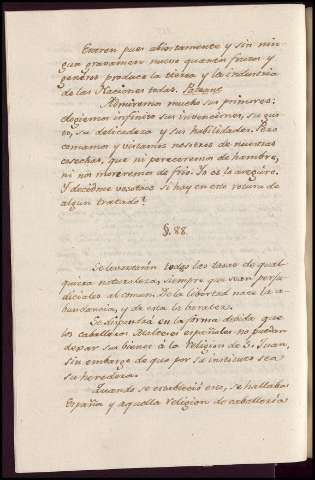 Entren pues abiertamente y sin nin-
gun gravamen nuevo quantos frutos y
generos produce la tierra y la industria
de las Naciones todas.
Admiremos mucho sus primores:
elogiemos infinito sus invenciones, su gus-
to, su delicadeza y sus habilidades. Pero
comamos y vistamos nosotros de nuestras
cosechas, que ni pereceremos de hambre,
ni nos moriremos de frio. Yo os lo aseguro.
Y decidme vosotros si hay en esto rotura de
algun tratado?
§. 88.
Se levantarán todas las tasas de qual-
quiera naturaleza, siempre que sean perju-
diciales al comun. De la libertad nace la a-
bundancia, y de esta la baratez.
Se dispondrá en la forma debida que
los caballeros Malteses españoles no puedan
dexar sus bienes á la Religion de S. Juan,
sin embargo de que por su instituto sea
su heredera.
Quando se estableció esto, se hallaba
España y aquella Religion de caballería